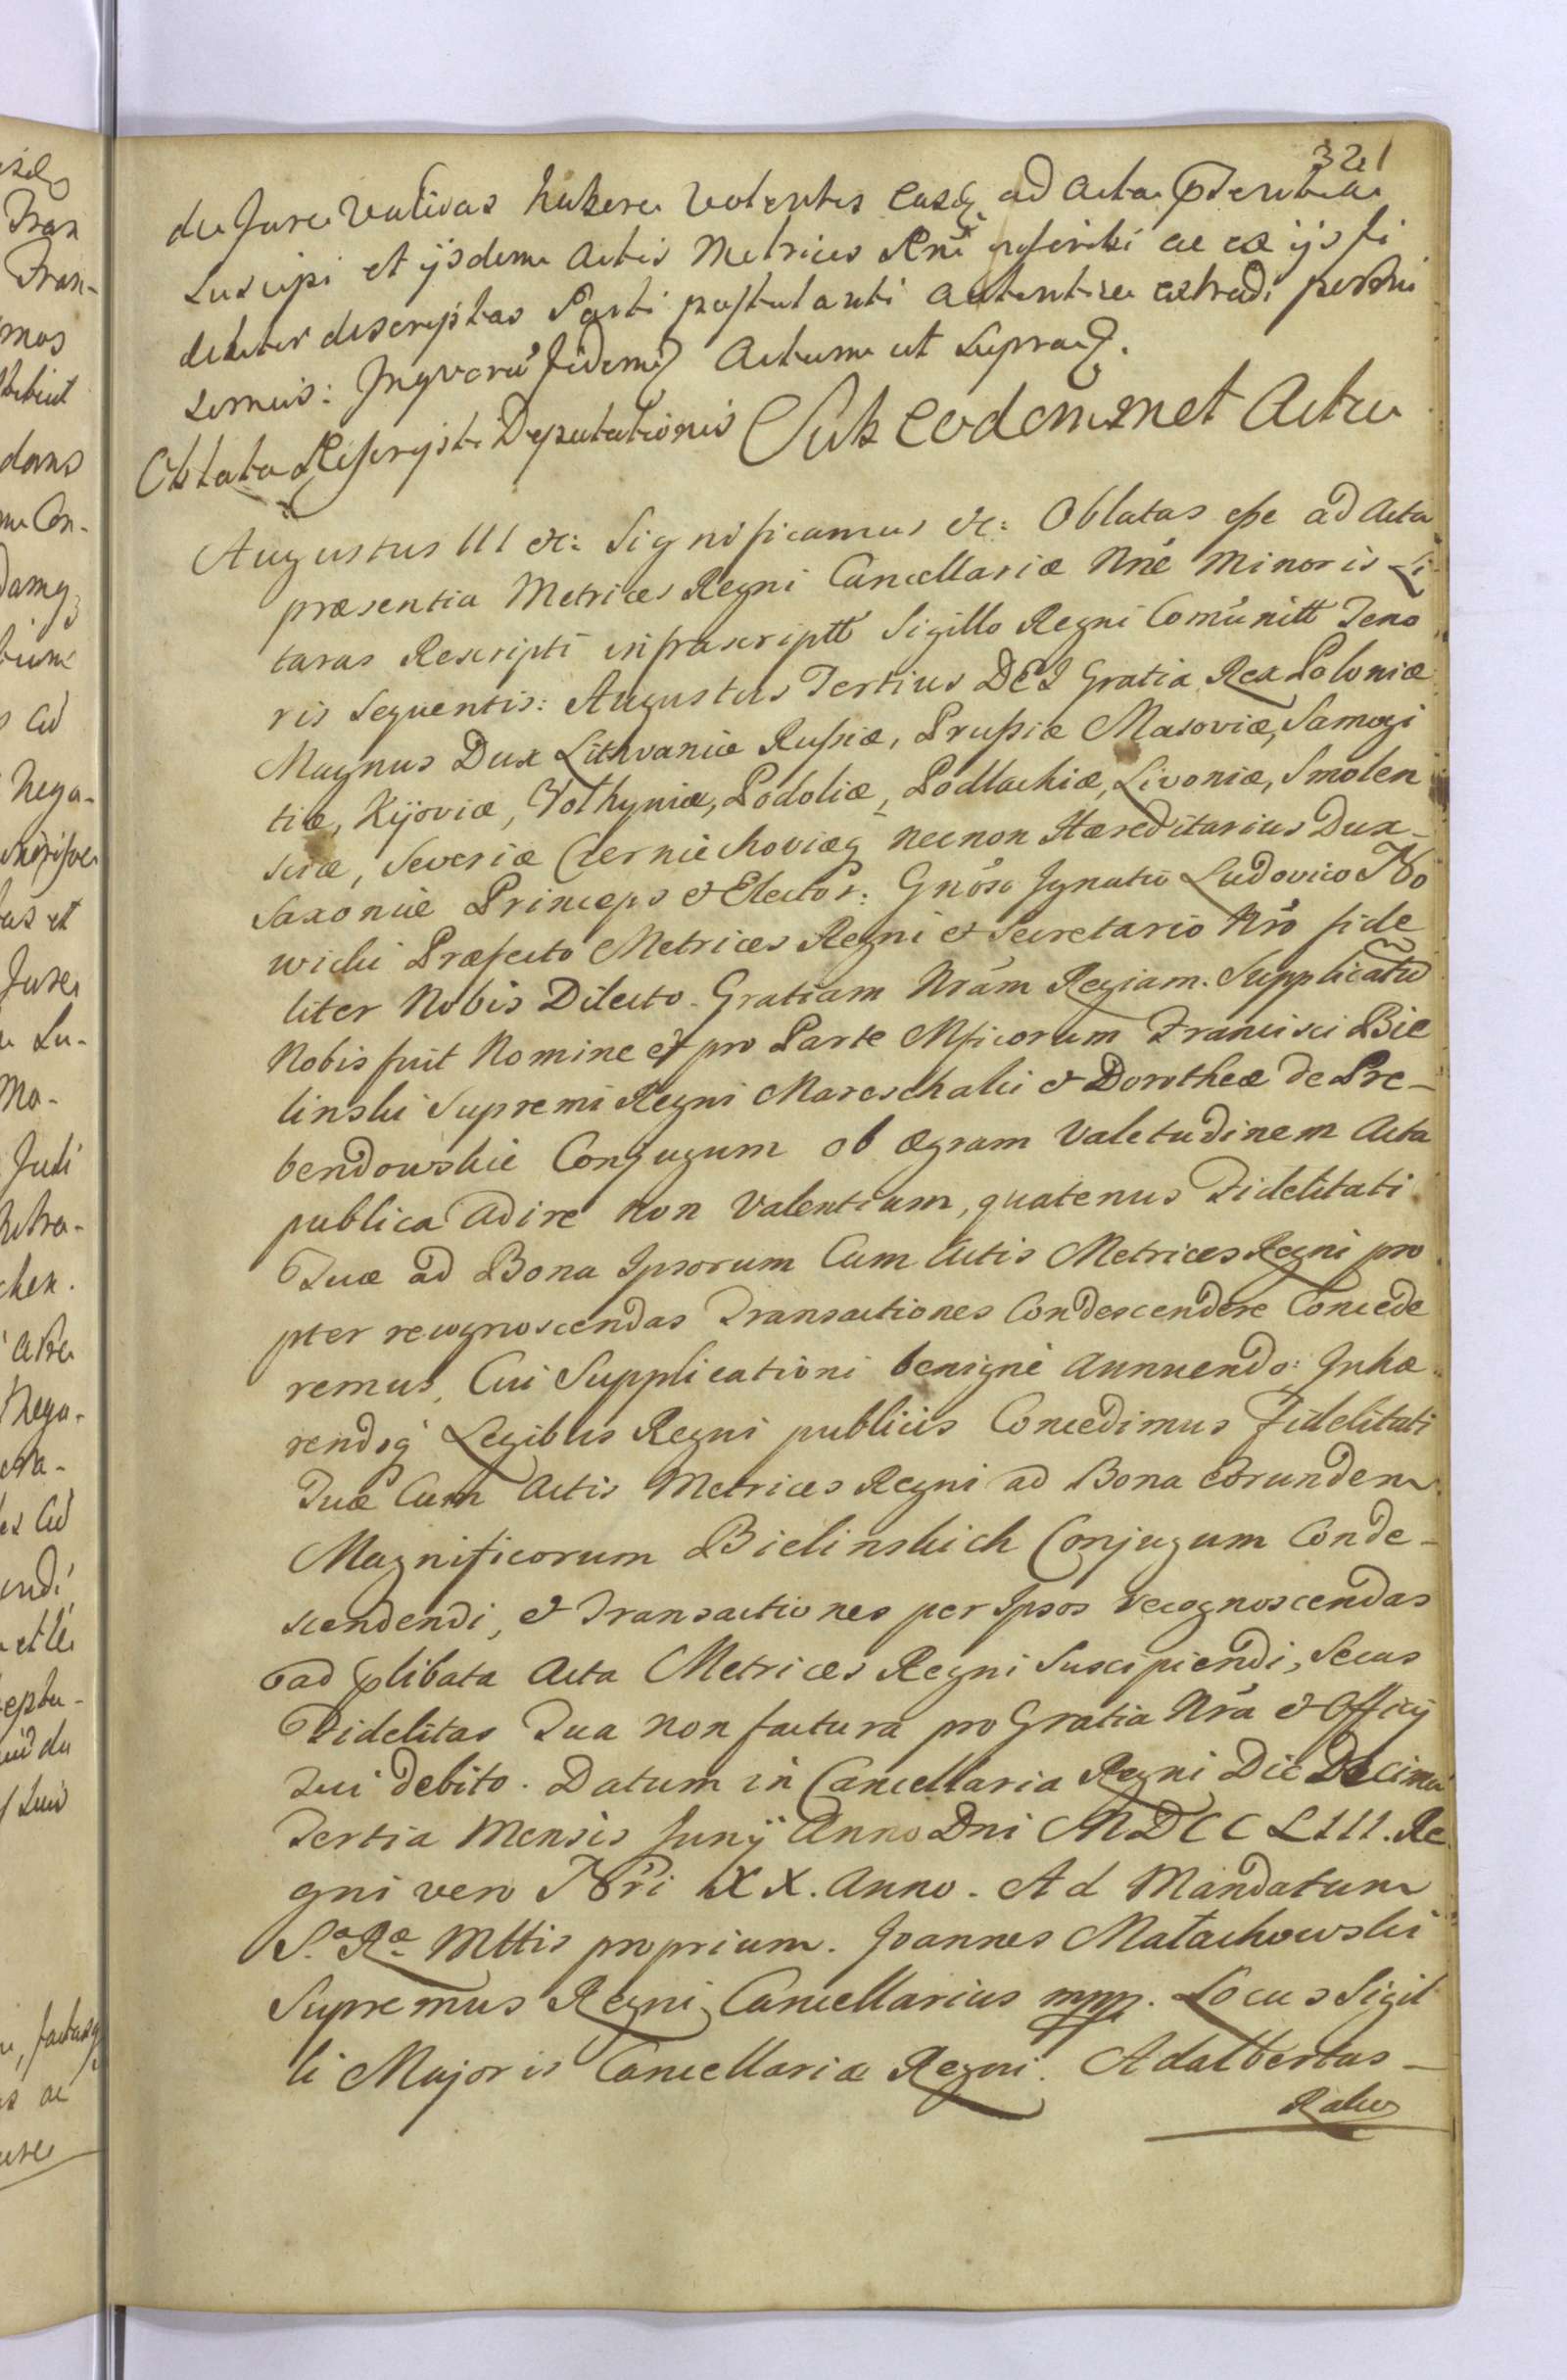 321
de Jure validas habere volentes easq̃ ad Acta p̃sentia
suscipi et ijsdem Actis Metrices Rñi inseribi ac ex ijs fi
deliter descriptas Parti postulanti autentice extradi permi
simus: In quorũ fidemq̃ Actum ut supraq̃.
Oblata Rescripti Deputationis Sub eodemmet Actu
Augustus III &c: Significamus &c: Oblatas eße ad Acta
præsentia Metrices Regni Cancellariæ Nr̃e Minoris Li
taras Rescripti infrascriptt Sigillo Regni Com̃unitt Teno
ris Sequentis: Augustus Tertius DEI Gratia Rex Poloniæ
Magnus Dux Lithvaniæ Rußiæ, Prußiæ Masoviæ, Samogi
tiæ, Kijoviæ, Volhyniæ, Podoliæ, Podlachiæ, Livoniæ, Smolen
sciæ, Severiæ Czerniechoviæq̃ necnon Hæreditarius Dux –
Saxoniæ Princeps & Elector: Gñoso Ignatio Ludovico No
wicki Præfecto Metrices Regni & Secretario Nr̃o fide
liter Nobis Dilecto. Gratiam Nr̃am Regiam. Supplicatũ
Nobis fuit Nomine & pro Parte Mficorum Francisci Bie
linski Supremi Regni Mareschalci & Dorotheæ de Pre–
bendowskie Conjugum ob ægram Valetudinem Acta
publica adire non Valentium, quatenus Fidelitati
Tuæ ad Bona Ipsorum Cum Actis Metrices Regni pro
pter recognoscendas Transactiones Condescendere Concede
remus, Cui Supplicationi benigne annuendo: Inhæ
rendoq̃ Legibus Regni publicis Concedimus Fidelitati
Tuæ Cum Actis Metrices Regni ad Bona eorundem
Magnificorum Bielinskich Conjugum Conde–
scendendi, & Transactiones per Ipsos recognoscendas
ad p̃libata Acta Metrices Regni Suscipiendi, Secus
Fidelitas Tua non factura pro Gratia Nr̃a & Officij
Sui debito. Datum in Cancellaria Regni Die Decima
Tertia Mensis Junij Anno Dni MDCCLIII. Re
gni vero Nr̃i XX. Anno. Ad Mandatum
S.æ Ræ Mttis proprium. Joannes Małachowski
Supremus Regni Cancellarius mpp. Locus Sigil
li Majoris Cancellariæ Regni. Adalbertus –